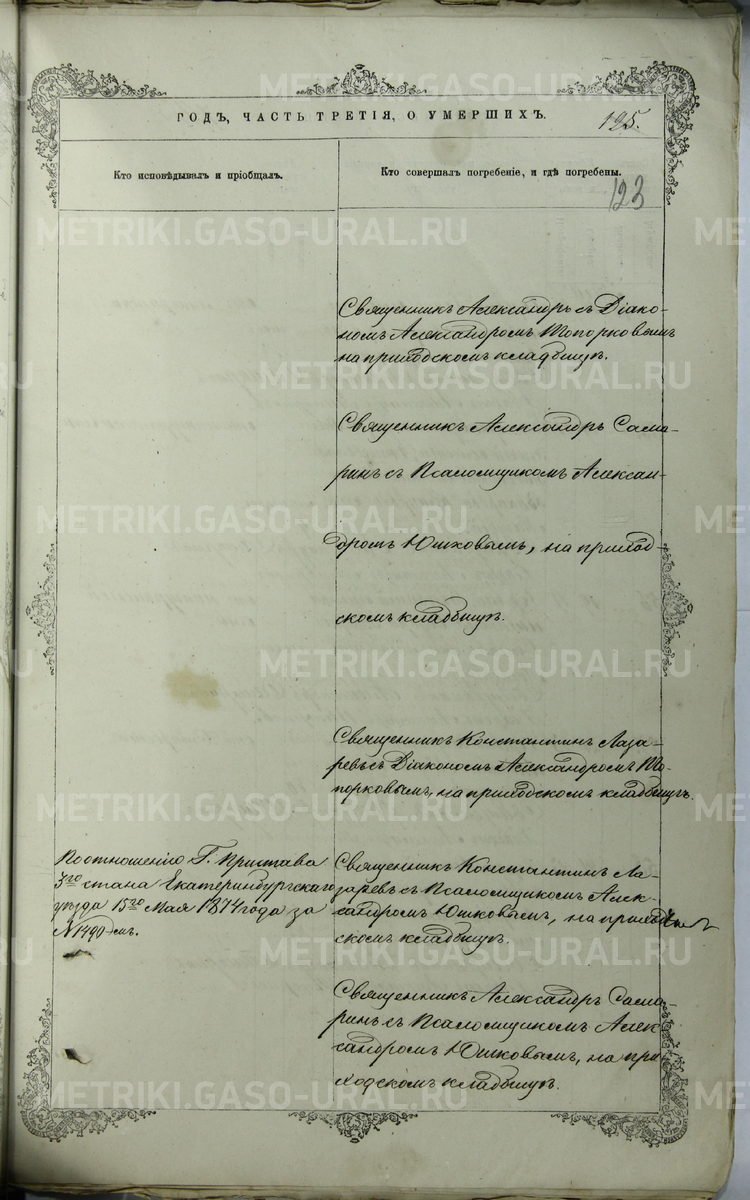 ГОДЪ, ЧАСТЬ ТРЕТІЯ, О УМЕРШИХЪ.
195.
Кто исповѣдывалъ и пріобщалъ.
Кто совершалъ погребеніе, и гдѣ погребены.
123
Священникъ Александръ съ Діако-
номъ Александромъ Топорковымъ
на приходскомъ кладбищѣ.
Священникъ Александръ Сама-
ринъ съ Псаломщикомъ Алексан-
дромъ Юшковымъ, на приход-
скомъ кладбищѣ.
Священникъ Константинъ Лаза-
ревъ съ Діакономъ Александромъ То-
порковымъ, на приходскомъ кладбищѣ.
По отношенію Г. Пристава
3го стана Екатеринбургскаго
уѣзда 15го Мая 1874 года за
№ 1490мъ.
Священникъ Константинъ Ла-
заревъ съ Псаломщикомъ Алек-
сандромъ Юшковымъ, на приход-
скомъ кладбищѣ.
Священникъ Александръ Сама-
ринъ съ Псаломщикомъ Алек-
сандромъ Юшковымъ, на при-
ходскомъ кладбищѣ.
METRIKI.GASO-URAL.RU
METRIKI.GASO-URAL.RU
METRIKI.GASO-URAL.RU
METRIKI.GASO-URAL.RU
METRIKI.GASO-URAL.RU
METRIKI.GASO-URAL.RU
METRIKI.GASO-URAL.RU
METRIKI.GASO-URAL.RU